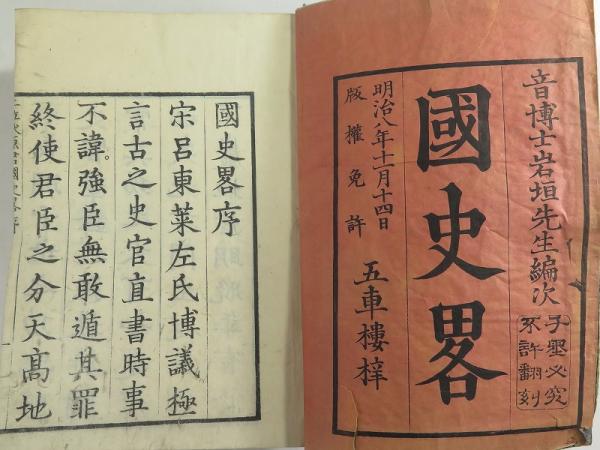 音博士岩垣先生編次
不許翻刻
國史畧
明治八年十一月十四日
版權免許
五車樓梓
國史畧序
宋呂東萊左氏博議極
言古之史官直書時事
不諱。強臣無敢遁其罪
終使君臣之分天高地